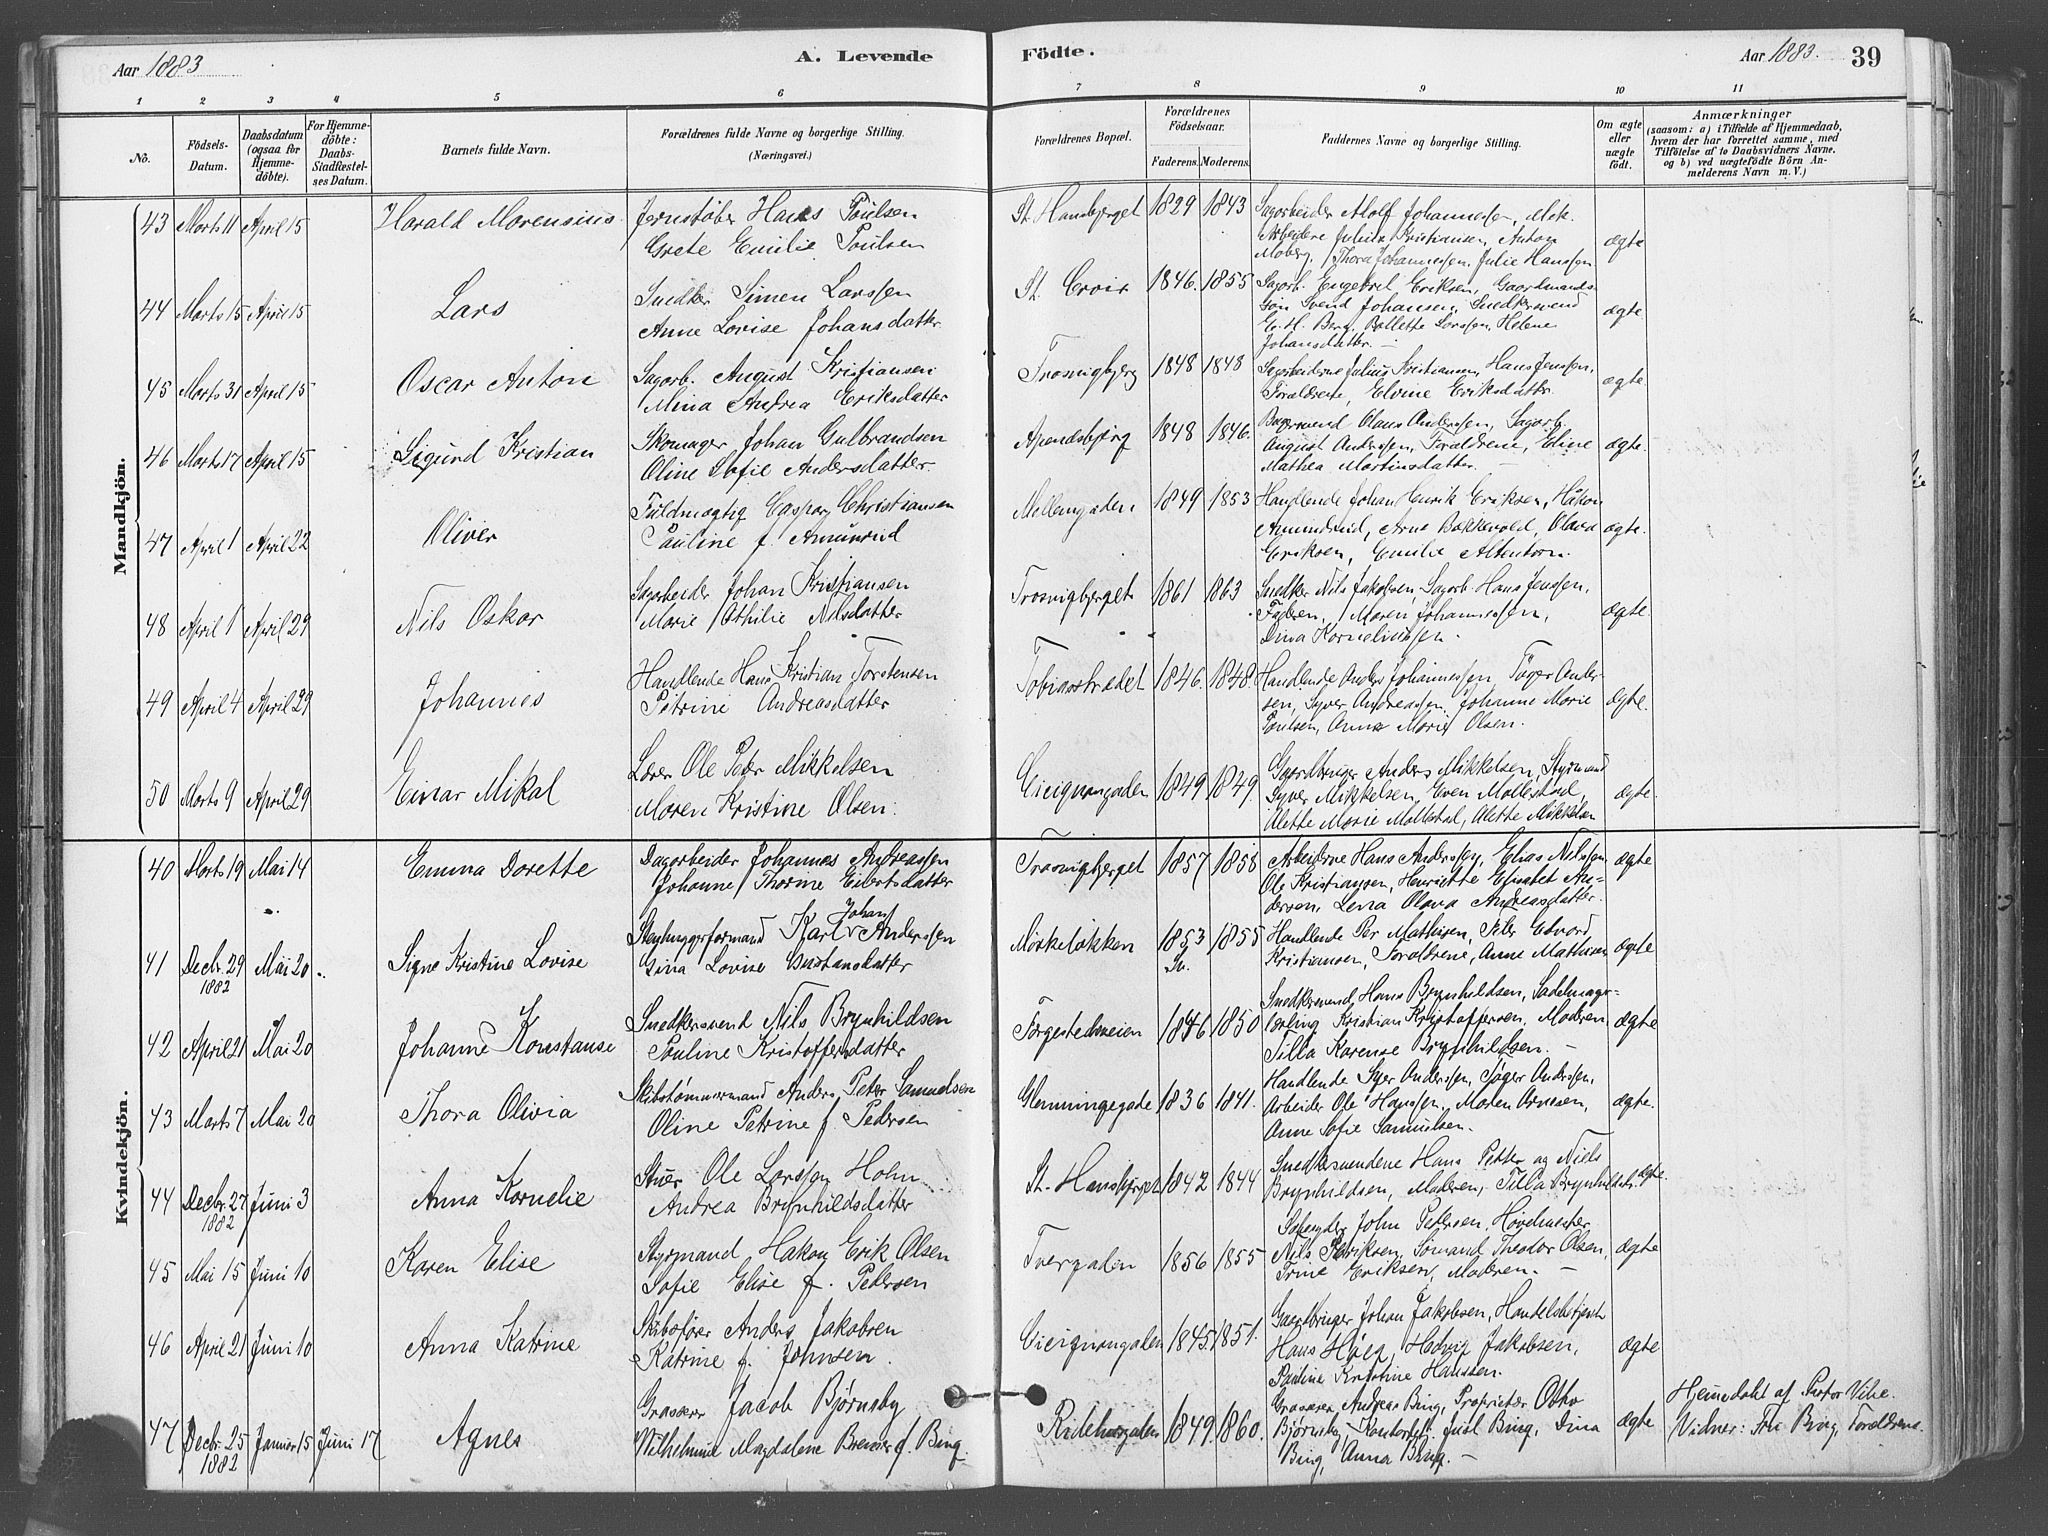 Aar 1883
A. Levende
Födte.
Aar 1883.
39
1 2 3 4 5 6 7 8 9 10 11
No.
Födsels-
Datum.
Daabsdatum
(ogsaa for
Hjemme-
döbte).
For Hjemme-
döbte:
Daabs-
Stadfæstel-
ses Datum.
Barnets fulde Navn.
Forældrenes fulde Navne og borgerlige Stilling.
(Næringsvei.)
Forældrenes Bopæl.
Forældrenes
Födselsaar.
Faderens. Moderens.
Faddernes Navne og borgerlige Stilling.
Om ægte
eller
uægte
födt.
Anmærkninger
(saasom: a) i Tilfælde af Hjemmedaab,
hvem der har forrettet samme, med
Tilföielse af to Daabsvidners Navne,
og b) ved uægtefödte Börn An-
melderens Navn m. V.)
Mandkjön.
43 Marts 11 April 15 Harald Morensius
Jernstøber Hans Poulsen
Grete Emilie Poulsen
St. Hansbjerget 1829 1843
Sagarbeider Adolf Johannessen,
Arbeidere Julius Kristiansen, Anton
Moberg, Thora Johannessen, Julie Hanssen
ægte
44 Marts 15 April 15 Lars
Snedker Simen Larssen
Anne Lovise Johansdatter
St. Croix 1846. 1855
Sagarb. Engebret Eriksen, Gaardmands
søn Svend Johansen, Snedkersvend
E. H. Berg, Bollette Larssen, Helene
Johansdatter. —
ægte.
45 Marts 31 April 15 Oscar Anton
Sagarb. August Kristiansen
Mina Andrea Eriksdatter
Trosvigbjerg 1848 1848
Sagarbeiderne Julius Kristiansen, Hans Jenssen,
Forældrene, Elvine Eriksdatter
ægte
46 Marts 17 April 15 Sigurd Kristian
Skomager Johan Gulbrandsen
Oline Sofie Andersdatter
Apendsbjerg 1848 1846.
Bagersvend Olaus Anderssen, Sagarb.
August Anderssen, Forældrene, Eline
Mathea Martinsdatter. —
ægte.
47 April 1 April 22 Oliver
Fuldmægtig Caspar Christiansen
Pauline f. Amundrud
Mellemgaden 1849 1853
Handlende Johan Henrik Eriksen, Håkon
Amundrud, Arne Bakkevold, Olava
Eriksen, Emilie Altenborn.
ægte.
48 April 1 April 29 Nils Oskar
Sagarbeider Johan Kristiansen
Marie Othilie Nilsdatter
Trosvigbjerget 1861 1863
Snedker Nils Jakobsen, Sagarb. Hans Jenssen,
Faderen, Maren Johannessen,
Dina Korneliussen.
ægte
49 April 4 April 29 Johannes
Handlende Hans Kristian Torstensen
Petrine Andreasdatter
Tobiasstrædet 1846. 1848.
Handlende Anders Johannessen, Tøger Ander-
sen, Syver Andreassen, Johanne Marie
Poulsen, Anna Marie Olsen.
ægte.
50 Marts 9 April 29 Einar Mikal
Lærer Ole Peter Mikkelsen
Maren Kristine Olsen
Cicignongaden 1849 1849.
Gaardbruger Anders Mikkelsen, Styrmand
Syver Mikkelsen, Even Mollestad,
Alette Marie Mollestad, Alette Mikkelsen
ægte.
Kvindekjön.
40 Marts 19 Mai 14 Emma Dorette
Dagarbeider Johannes Andreassen
Johanne Thorine Eilertsdatter
Trosvigbjerget 1857 1858
Arbeiderne Hans Anderssen, Elias Nilssen
Ole Kristiansen, Henriette Elisabet An-
dersen, Lena Olava Andreasdatter.
ægte
41 Decbr. 29 1882 Mai 20 Signe Kristine Lovise
Stenhuggerformand Karl Johan Anderssen
Gina Lovise Gustavsdatter
Mørkeløkken 1853 Sv. 1855
Handlende Per Mathisen, Peter Edvard
Kristiansen, Forældrene, Anne Mathisen
ægte
42 April 21 Mai 20 Johanne Konstanse
Snedkersvend Nils Brynhildsen
Pouline Kristoffersdatter
Torgestedveien 1846 1850
Snedkersvend Hans Brynhildsen, Sadelmager-
lærling Kristian Kristoffersen, Moderen,
Tilla Karense Brynhildsen. —
ægte
43 Marts 7 Mai 20 Thora Olivia
Skibstømmermand Anders Peter Samuelsen
Oline Petrine f. Pedersen
Glemmingegade 1836 1841.
Handlende Syver Anderssen, Tøger Anderssen,
Arbeider Ole Hanssen, Maren Arnesen,
Anne Sofie Samuelsen.
ægte.
44 Decbr. 27 1882 Juni 3 Anna Kornelie
Stuer Ole Larssen Holm
Andrea Brynhildsdatter
St. Hansbjerget 1842 1844
Snedkersvendene Hans Petter og Niels
Brynhildsen, Moderen, Tilla Brynhildsdt.
ægte.
45 Mai 15 Juni 10 Karen Elise
Styrmand Hakon Erik Olsen
Sofie Elise f. Pedersen
Tvergaden 1856 1855
John Pedersen, Hovmester
Nils Eriksen, Sømand Theodor Olsen,
Trine Eriksen, Moderen. —
ægte
46 April 21 Juni 10 Anna Katrine
Skibsfører Anders Jakobsen
Katrine f. Johnsen.
Cicignongaden 1845. 1851.
Gaardbruger Johan Jakobsen, Handelsbetjent
Hans Høeg, Hedvig Jakobsen,
Pauline Kristine Hanssen.
ægte
47 Decbr. 25 1882 Januar 15 Juni 17 Agnes
Grosserer Jacob Bjørneby
Wilhelmine Magdalene Bremer f. Bing.
Ridehusgaden 1849. 1860.
Grosserer Andreas Bing, Proprietær Otto
Bjørneby, Kontorbetj. Just Bing, Dina
Bing, Anna Bing. —
ægte
Hjemmedøbt af Pastor Vibe.
Vidner: Fru Bing, Forældrene.